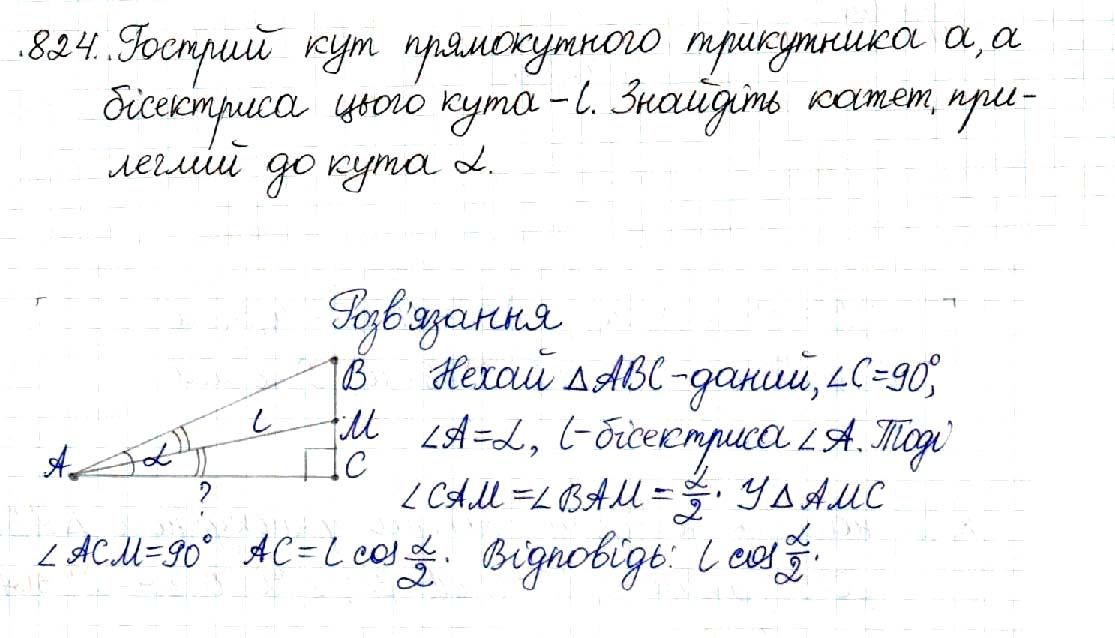 .824. Гострий кут прямокутного трикутника α, а
бісектриса цього кута – l. Знайдіть катет, при-
леглий до кута α.
Розв'язання
B
Нехай △ABC – даний, ∠C=90°,
l
M
∠A=α, l – бісектриса ∠A. Тоді
A
α
C
?
∠CAM = ∠BAM = α/2. У △AMC
∠ACM=90° AC = l cos α/2. Відповідь: l cos α/2.